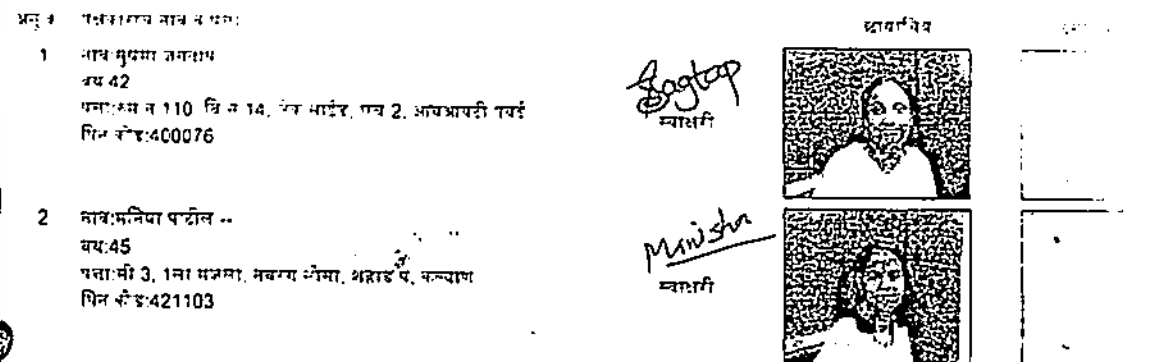 अनु क्र पक्षकाराचे नाव व पत्ता
छायाचित्र
1 नाव:सुषमा जगताप
वय:42
पत्ता:रूम न 110, बि न 14, लेक साईड, एच 2, आयआयटी पवई
पिन कोड:400076
Jagtap
स्वाक्षरी
2 नाव:मनिषा पाटील --
वय:45
पत्ता:सी 3, 1ला मजला, शहाड प, कल्याण
पिन कोड:421103
Manisha
स्वाक्षरी